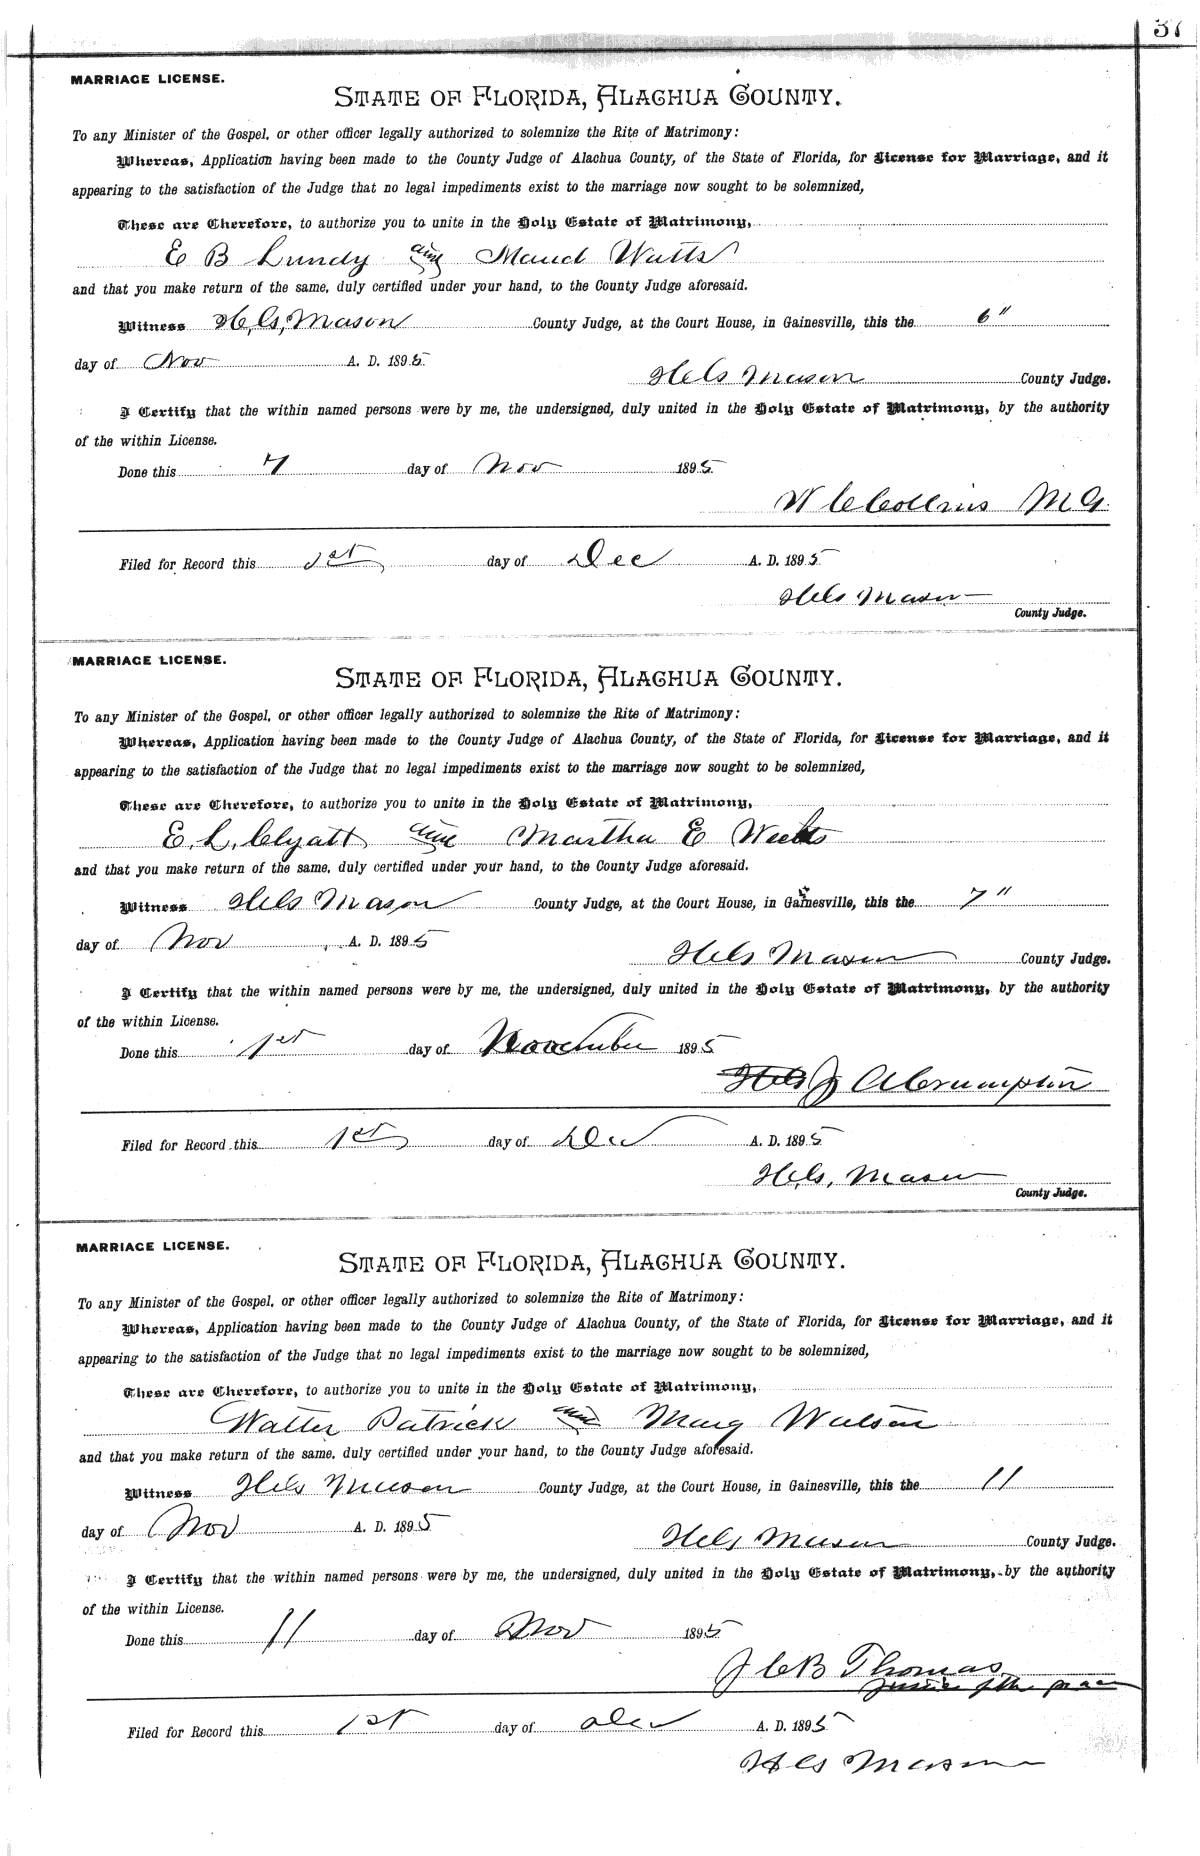 37
MARRIAGE LICENSE.
STATE OF FLORIDA, ALACHUA COUNTY.
To any Minister of the Gospel, or other officer legally authorized to solemnize the Rite of Matrimony:
Whereas, Application having been made to the County Judge of Alachua County, of the State of Florida, for License for Marriage, and it
appearing to the satisfaction of the Judge that no legal impediments exist to the marriage now sought to be solemnized,
These are Therefore, to authorize you to unite in the Holy Estate of Matrimony,
E B Lundy and Maud Watts
and that you make return of the same, duly certified under your hand, to the County Judge aforesaid.
Witness H. G. Mason County Judge, at the Court House, in Gainesville, this the 6"
day of Nov A. D. 1895
H G Mason County Judge.
I Certify that the within named persons were by me, the undersigned, duly united in the Holy Estate of Matrimony, by the authority
of the within License.
Done this 7 day of Nov 1895
W C Collins M G.
Filed for Record this 1st day of Dec A. D. 1895
H G Mason
County Judge.
MARRIAGE LICENSE.
STATE OF FLORIDA, ALACHUA COUNTY.
To any Minister of the Gospel, or other officer legally authorized to solemnize the Rite of Matrimony:
Whereas, Application having been made to the County Judge of Alachua County, of the State of Florida, for License for Marriage, and it
appearing to the satisfaction of the Judge that no legal impediments exist to the marriage now sought to be solemnized,
These are Therefore, to authorize you to unite in the Holy Estate of Matrimony,
E. L. Clyatt and Martha E
and that you make return of the same, duly certified under your hand, to the County Judge aforesaid.
Witness H G Mason County Judge, at the Court House, in Gainesville, this the 7"
day of Nov A. D. 1895
H G Mason County Judge.
I Certify that the within named persons were by me, the undersigned, duly united in the Holy Estate of Matrimony, by the authority
of the within License.
Done this 1st day of November 1895
J A Crumpton
Filed for Record this 1st day of Dec A. D. 1895
H. G. Mason
County Judge.
MARRIAGE LICENSE.
STATE OF FLORIDA, ALACHUA COUNTY.
To any Minister of the Gospel, or other officer legally authorized to solemnize the Rite of Matrimony:
Whereas, Application having been made to the County Judge of Alachua County, of the State of Florida, for License for Marriage, and it
appearing to the satisfaction of the Judge that no legal impediments exist to the marriage now sought to be solemnized,
These are Therefore, to authorize you to unite in the Holy Estate of Matrimony,
Walter Patrick and Mary Watson
and that you make return of the same, duly certified under your hand, to the County Judge aforesaid.
Witness H G Mason County Judge, at the Court House, in Gainesville, this the 11
day of Nov A. D. 1895
H G Mason County Judge.
I Certify that the within named persons were by me, the undersigned, duly united in the Holy Estate of Matrimony, by the authority
of the within License.
Done this 11 day of Nov 1895
J C B Thomas
Justice of the peace
Filed for Record this 1st day of Dec A. D. 1895
H G Mason